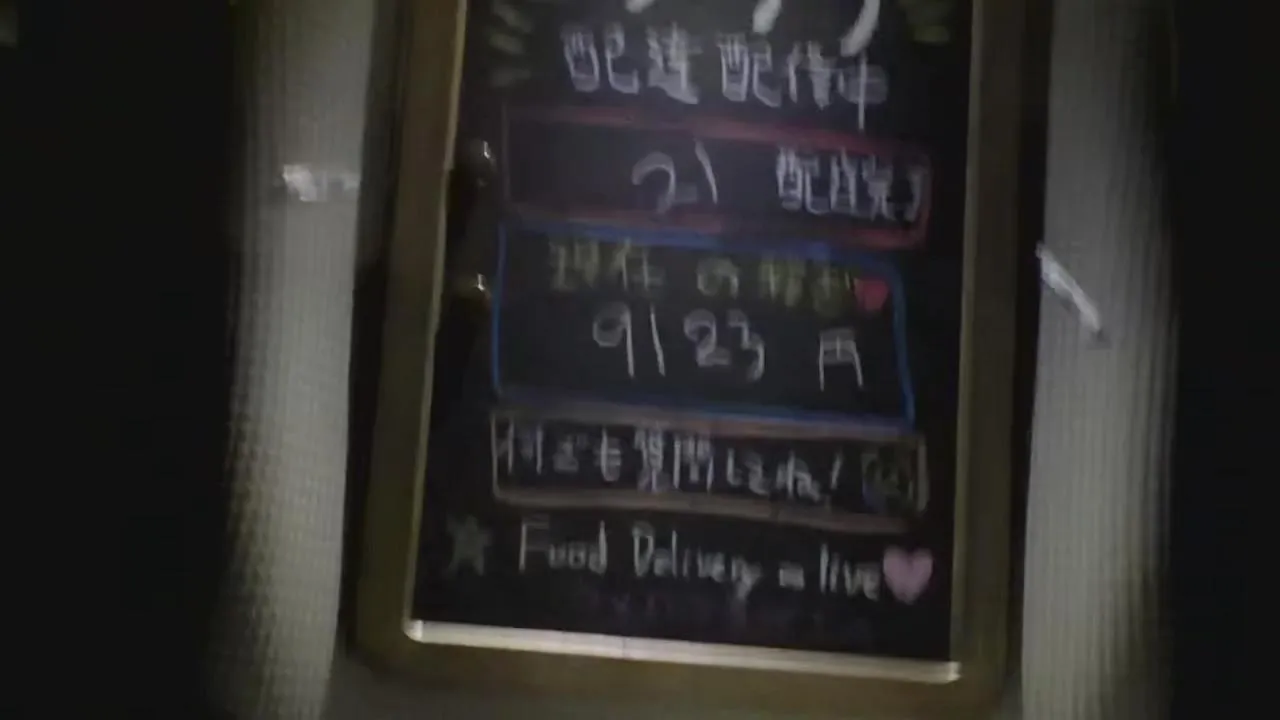 配達配信中
21 配達完了
現在の時給
9123 円
何でも質問してね!
Food Delivery = live